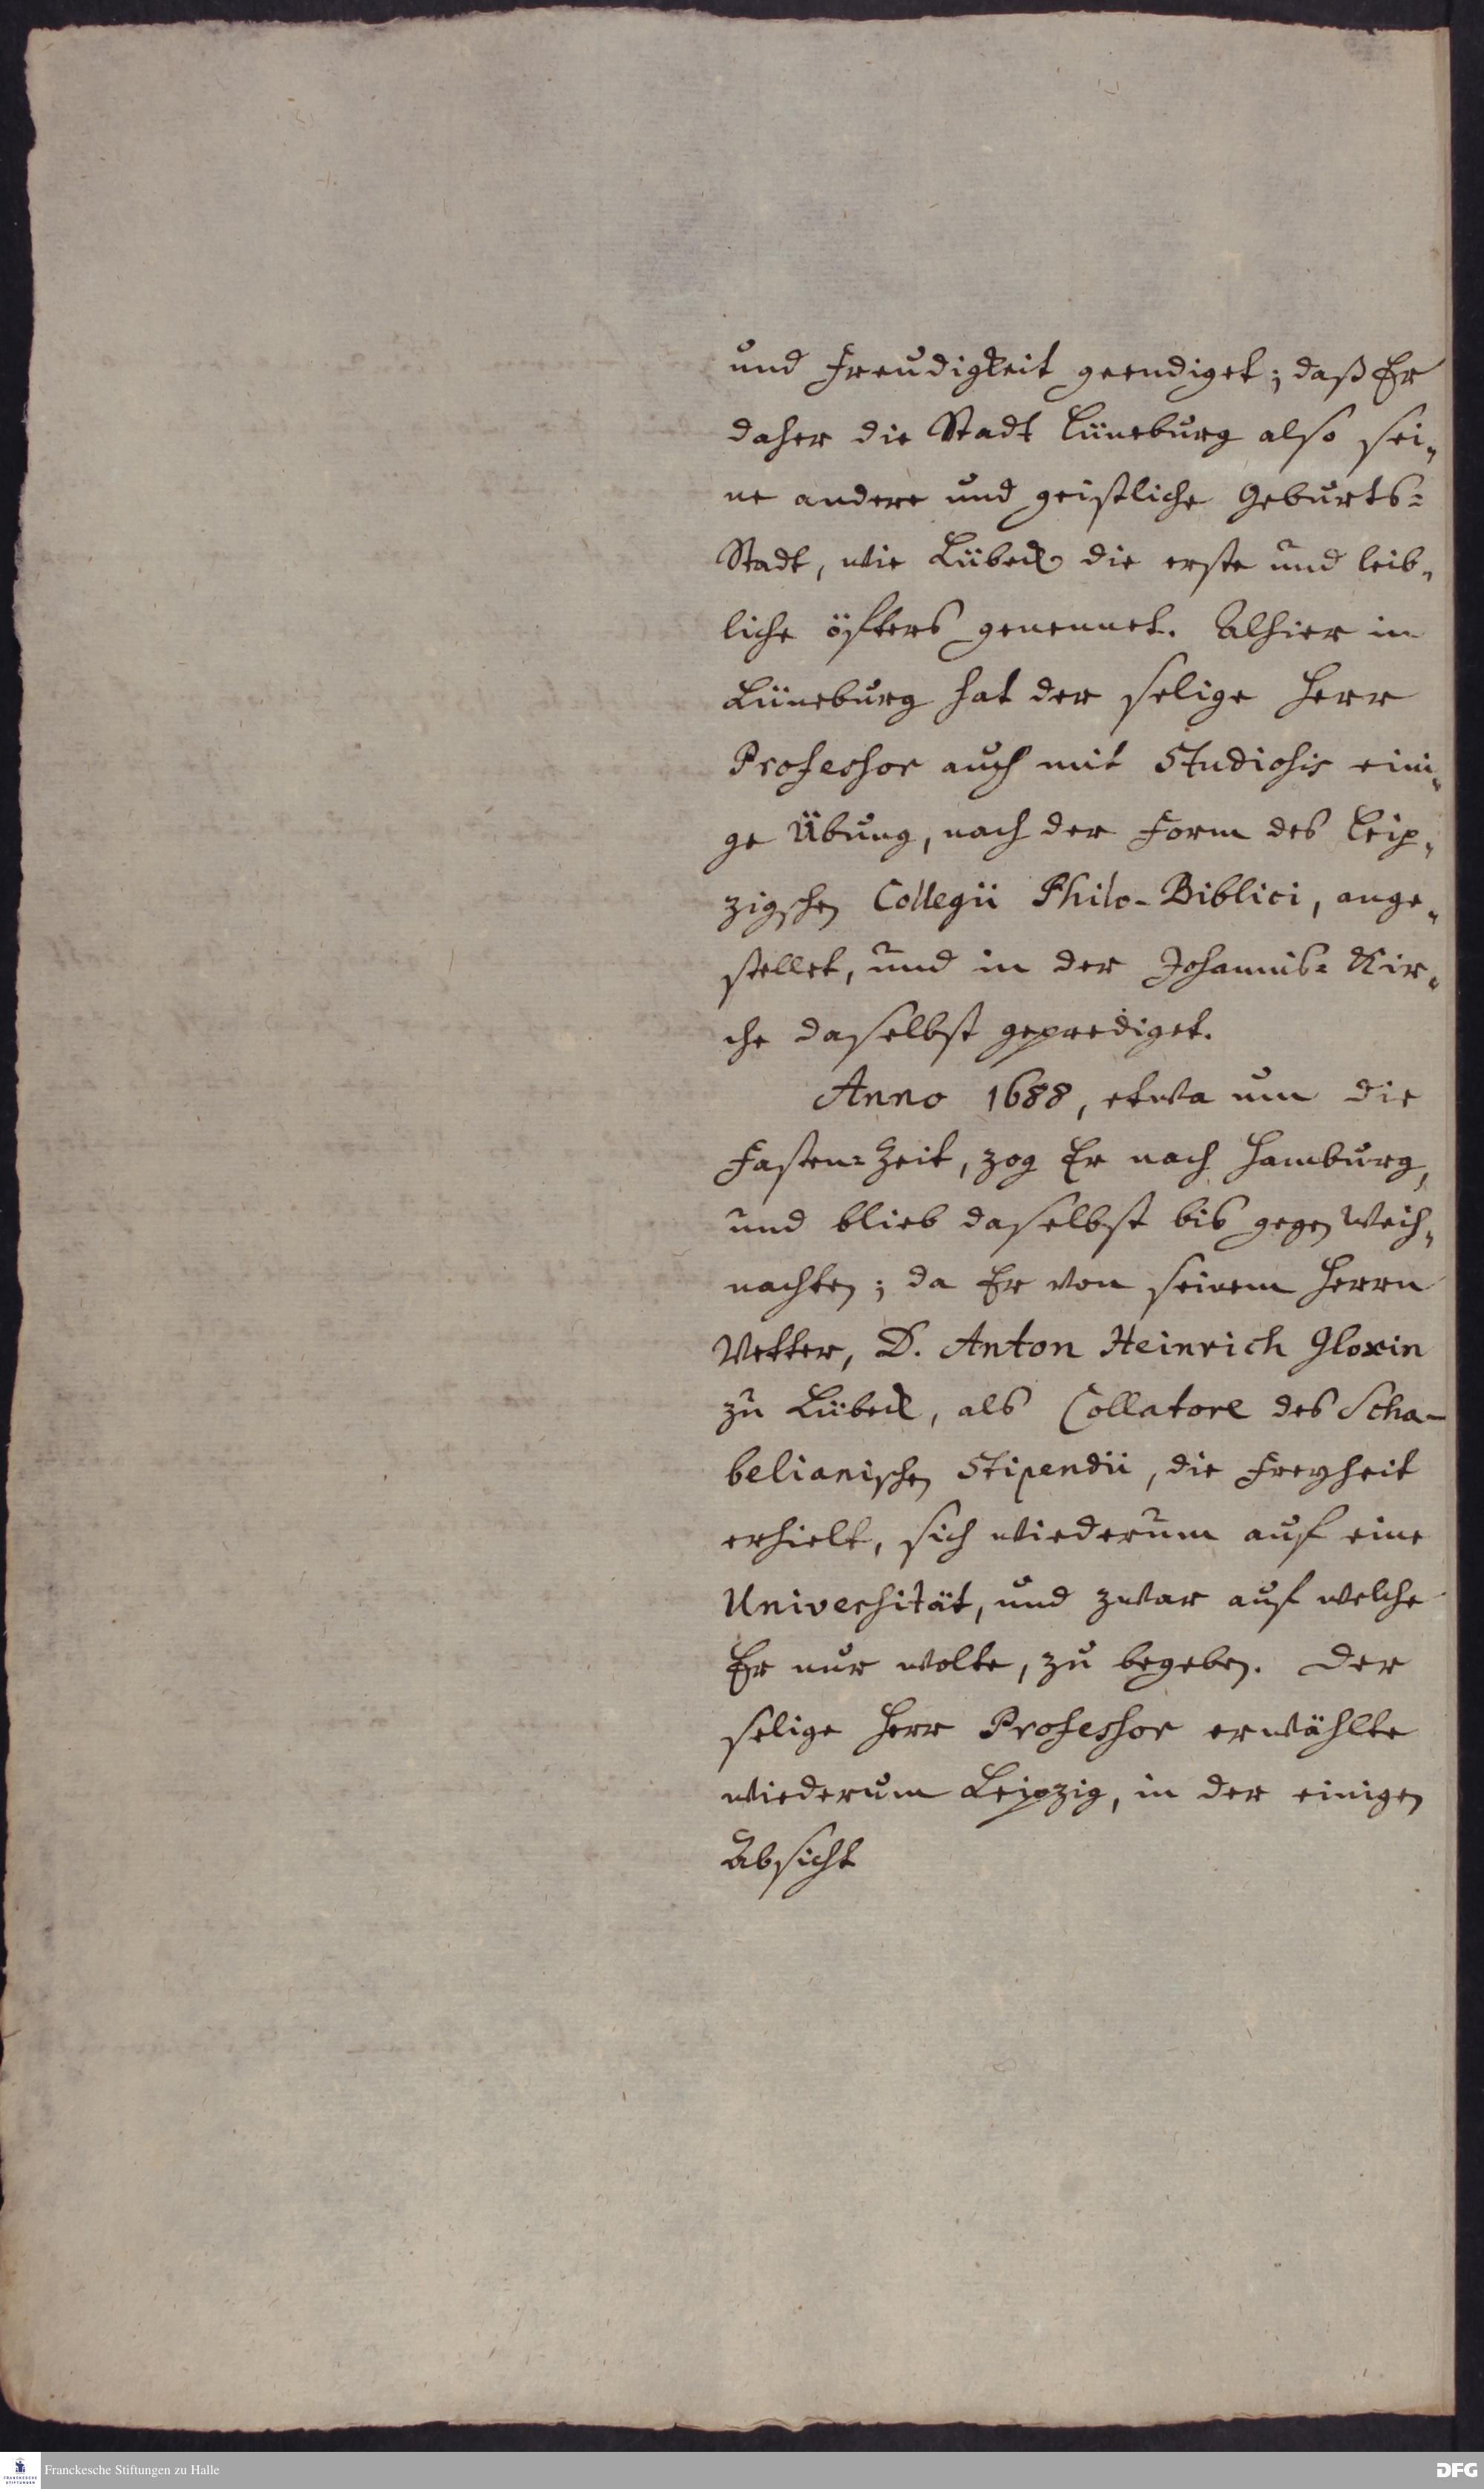 und Freudigkeit geendiget; daß Er
daher die Stadt Lüneburg also sei-
ne andere und geistliche Geburts-
Stadt, wie Lübeck die erste und leib-
liche öfters genennet. Alhier in
Lüneburg hat der selige Herr
Professor auch mit Studiosis eini-
ge Übung, nach der Form des Leip-
zigschen Collegii Philo-Biblici, ange-
stellet, und in der Johannis-Kir-
che daselbst geprediget.
Anno 1688, etwa um die
Fasten-Zeit, zog Er nach Hamburg,
und blieb daselbst bis gegen Weih-
nachten; da Er von seinem Herrn
Vetter, D. Anton Heinrich Gloxin
zu Lübeck, als Collatore des Scha-
belianischen Stipendii, die Freyheit
erhielt, sich wiederum auf eine
Universität, und zwar auf welche
Er nur wolte, zu begeben. Der
selige Herr Professor erwählte
wiederum Leipzig, in der einigen
Absicht
Franckesche Stiftungen zu Halle
DFG